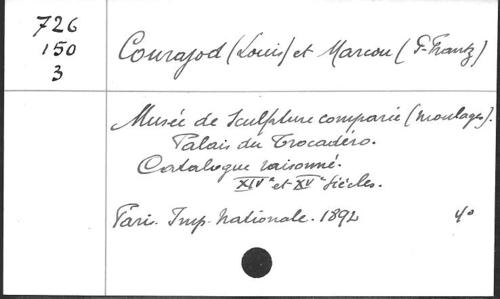 726
150
3
Courajod (Louis) et Marcou (P-Frantz)
Musée de Sculpture comparée (moulages).
Palais du Trocadéro.
Catalogue raisonné.
XIVe et XVe Siècles.
Paris. Imp. Nationale. 1892 4o